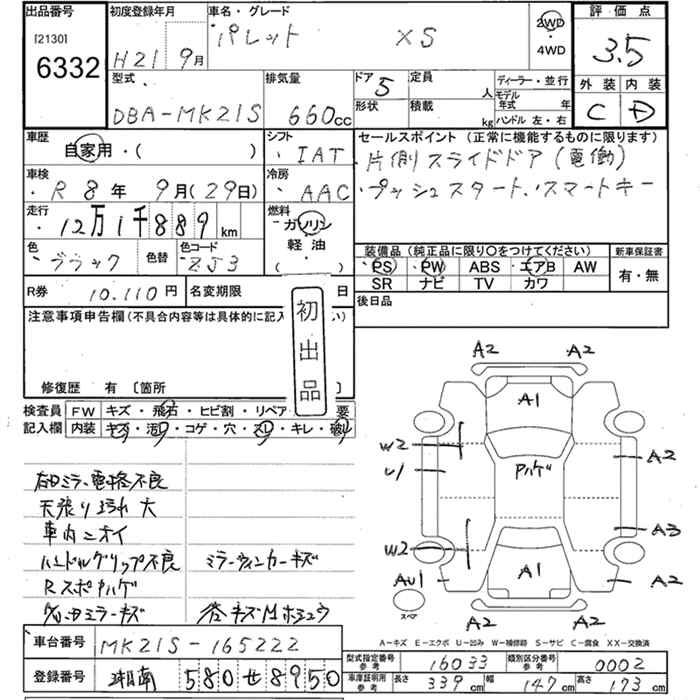 出品番号
[2130]
6332
初度登録年月
H21 9月
車名・グレード
パレット XS
2WD
・4WD
評価点
3.5
外装 内装
C D
型式
DBA-MK21S
排気量
660cc
ドア 5
形状
定員 人
積載 kg
ディーラー・並行
モデル年式 年
ハンドル 左・右
車歴
自家用・( )
シフト
IAT
セールスポイント (正常に機能するものに限ります)
片側スライドドア(電動)
プッシュスタート、スマートキー
車検
R8年 9月(29日)
冷房
AAC
走行
12万1千889km
燃料
ガソリン
軽油
( )
色
ブラック
色替
色コード
ZJ3
装備品 (純正品に限り○をつけてください)
PS PW ABS エアB AW
SR ナビ TV カワ
新車保証書
有・無
R券 10.110円 名変期限 日
後日品
注意事項申告欄(不具合内容等は具体的に記入 い)
初出品
修復歴 有 〔箇所
検査員記入欄
FW キズ・飛石・ヒビ割・リペア 要
内装 キズ・汚レ・コゲ・穴・スレ・キレ・破レ
右ドアミラー電格不良
天張り汚れ 大
車内ニオイ
ハンドルグリップ不良 ミラーウィンカーキズ
Rスポハゲ
A2 A2
A1
W2
U1
Aハゲ
A2
A3
W2
AU1
A1
A2
スペア
A2 A2
A-キズ E-エクボ U-凹み W-補修跡 S-サビ C-腐食 XX-交換済
車台番号 MK21S-165222
登録番号 湘南 580 せ 8950
型式指定番号 参考 16033 類別区分番号 参考 0002
車庫証明用 参考 長さ 339cm 幅 147cm 高さ 173cm